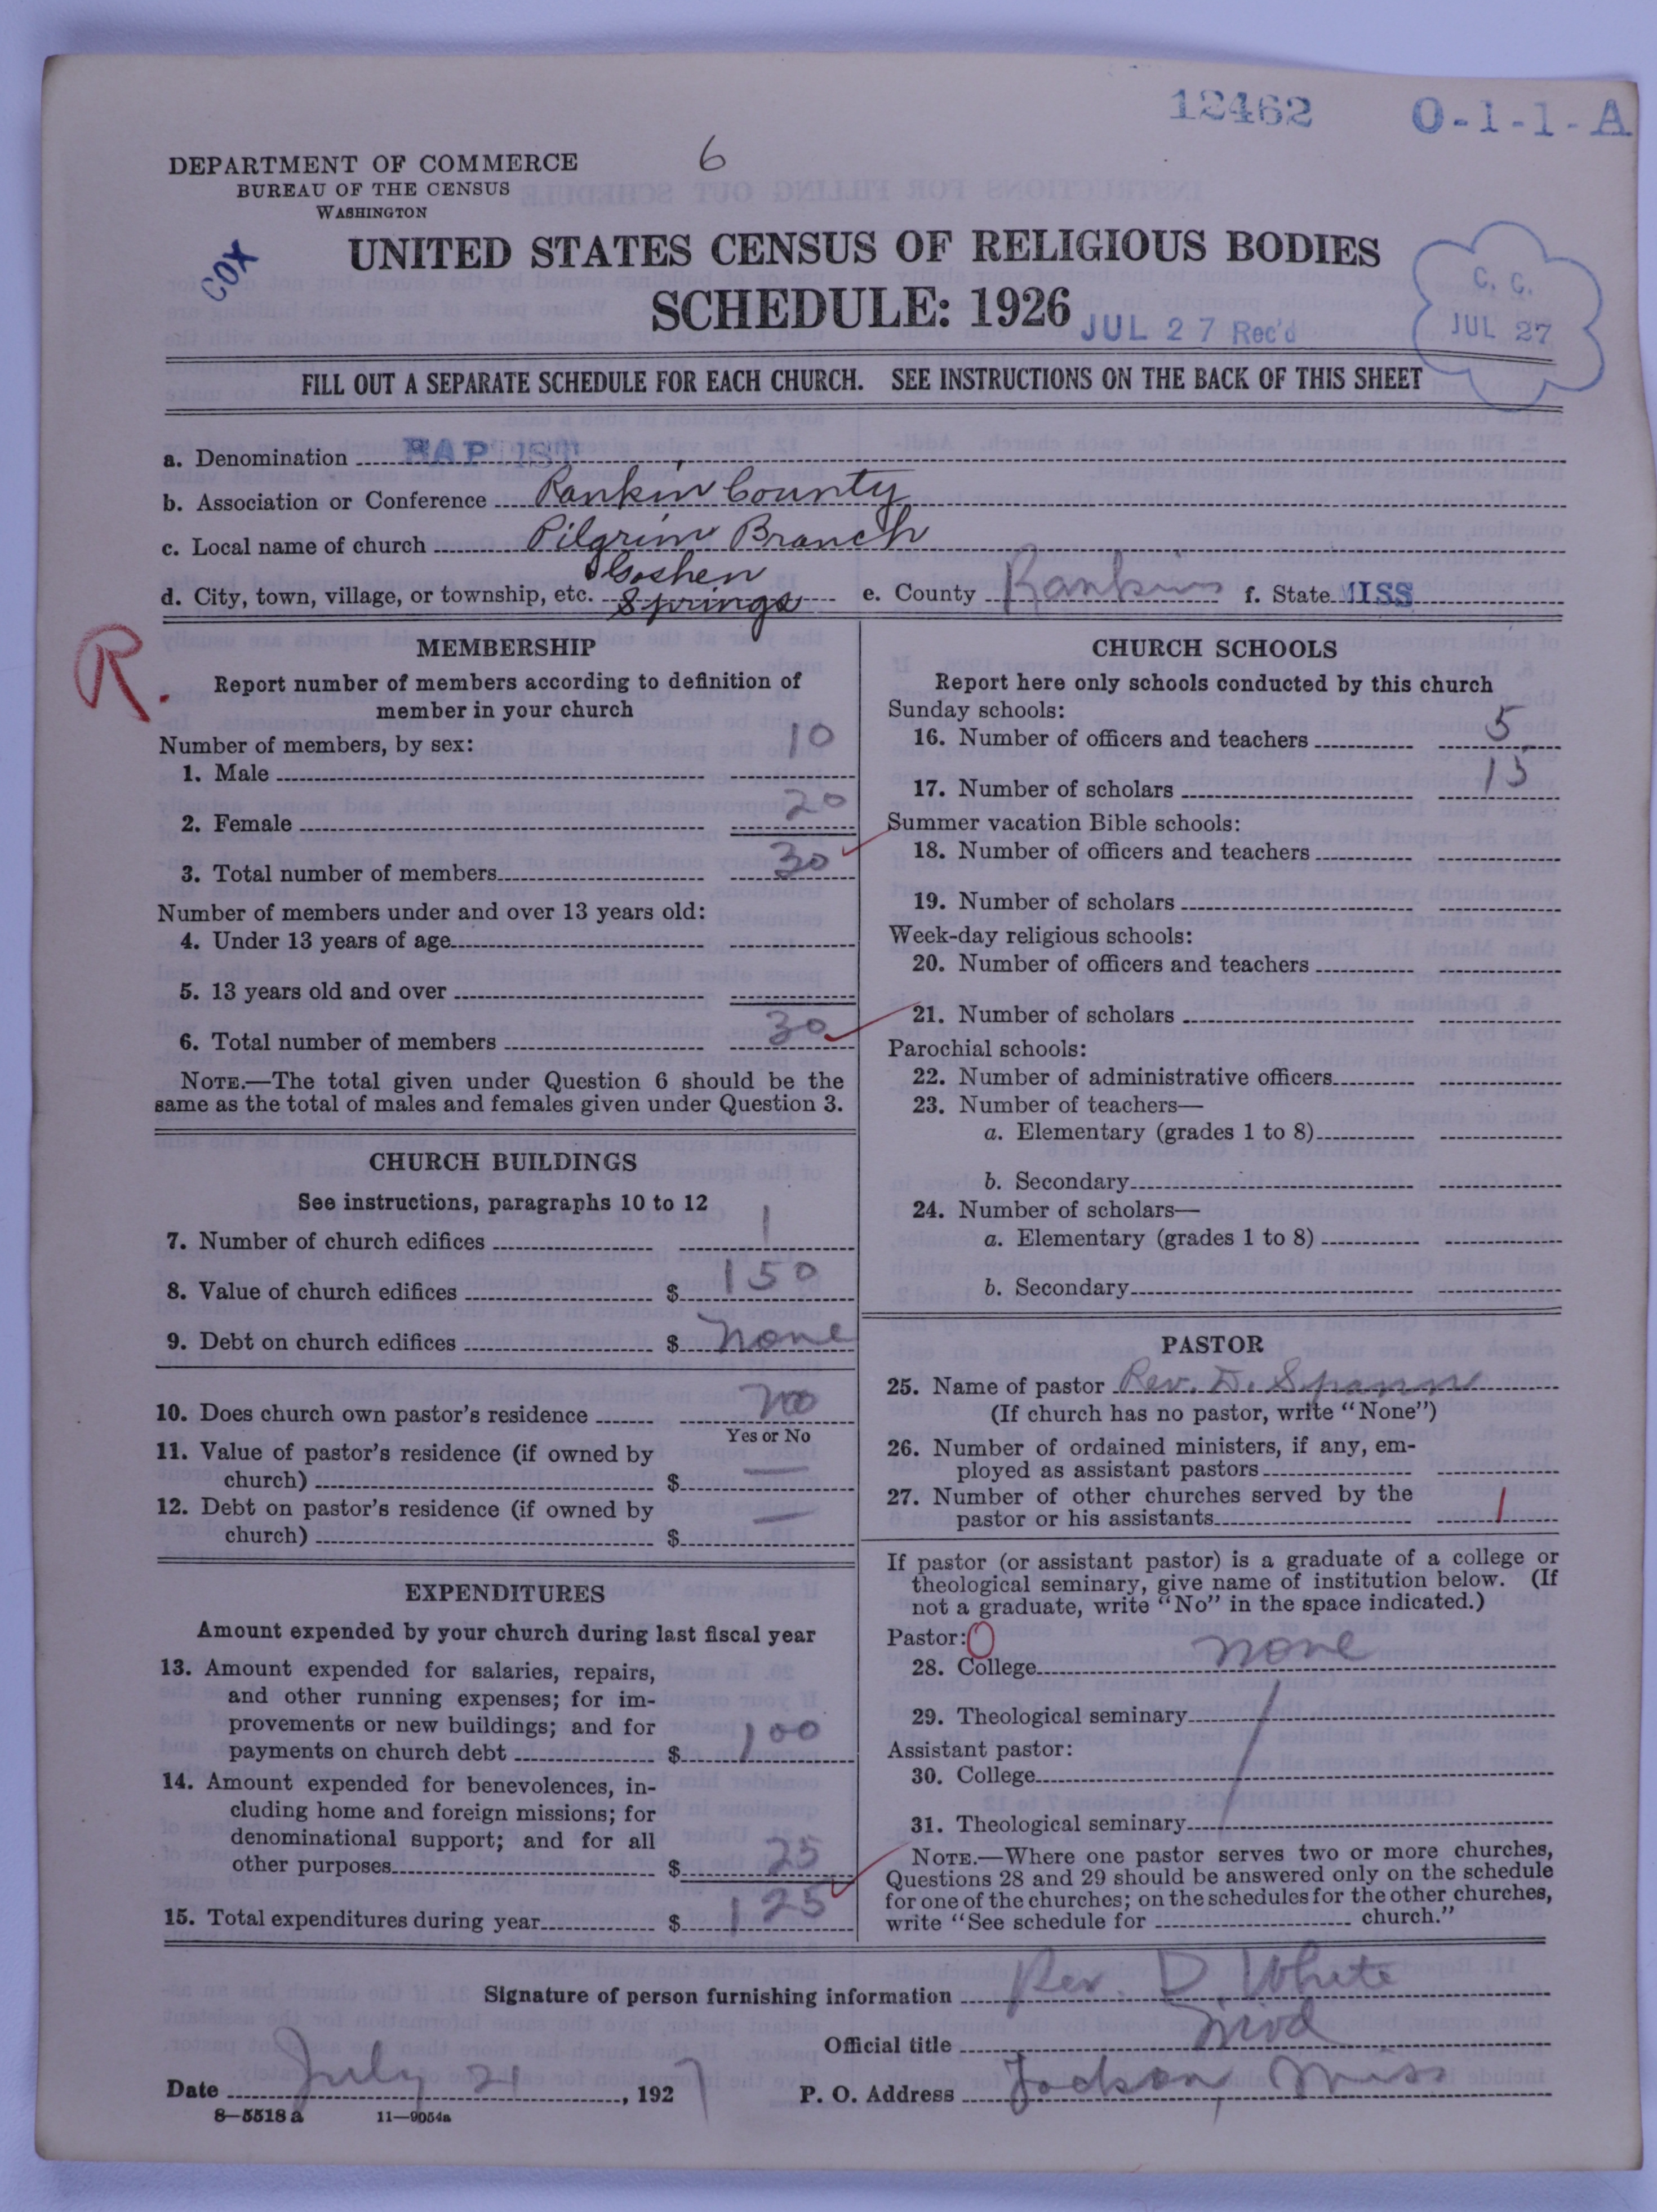 12462 O-1-1-A
6
DEPARTMENT OF COMMERCE
BUREAU OF THE CENSUS
WASHINGTON
COX
UNITED STATES CENSUS OF RELIGIOUS BODIES
SCHEDULE: 1926
JUL 27 Rec'd
C. C.
JUL 27
FILL OUT A SEPARATE SCHEDULE FOR EACH CHURCH. SEE INSTRUCTIONS ON THE BACK OF THIS SHEET
a. Denomination BAPTIST
b. Association or Conference Rankin County
c. Local name of church Pilgrim Branch
d. City, town, village, or township, etc. Goshen Springs e. County Rankin f. State MISS
R.
MEMBERSHIP
Report number of members according to definition of
member in your church
Number of members, by sex:
1. Male 10
2. Female 20
3. Total number of members 30
Number of members under and over 13 years old:
4. Under 13 years of age
5. 13 years old and over
6. Total number of members 30
NOTE.—The total given under Question 6 should be the
same as the total of males and females given under Question 3.
CHURCH BUILDINGS
See instructions, paragraphs 10 to 12
7. Number of church edifices 1
8. Value of church edifices $ 150
9. Debt on church edifices $ none
10. Does church own pastor's residence noo
Yes or No
11. Value of pastor's residence (if owned by
church) $ —
12. Debt on pastor's residence (if owned by
church) $ —
EXPENDITURES
Amount expended by your church during last fiscal year
13. Amount expended for salaries, repairs,
and other running expenses; for im-
provements or new buildings; and for
payments on church debt $ 100
14. Amount expended for benevolences, in-
cluding home and foreign missions; for
denominational support; and for all
other purposes $ 25
15. Total expenditures during year $ 125
CHURCH SCHOOLS
Report here only schools conducted by this church
Sunday schools:
16. Number of officers and teachers 5
17. Number of scholars 15
Summer vacation Bible schools:
18. Number of officers and teachers
19. Number of scholars
Week-day religious schools:
20. Number of officers and teachers
21. Number of scholars
Parochial schools:
22. Number of administrative officers
23. Number of teachers—
a. Elementary (grades 1 to 8)
b. Secondary
24. Number of scholars—
a. Elementary (grades 1 to 8)
b. Secondary
PASTOR
25. Name of pastor Rev. D. Spann
(If church has no pastor, write "None")
26. Number of ordained ministers, if any, em-
ployed as assistant pastors
27. Number of other churches served by the
pastor or his assistants 1
If pastor (or assistant pastor) is a graduate of a college or
theological seminary, give name of institution below. (If
not a graduate, write "No" in the space indicated.)
Pastor: O
28. College none
29. Theological seminary
Assistant pastor:
30. College
31. Theological seminary
NOTE.—Where one pastor serves two or more churches,
Questions 28 and 29 should be answered only on the schedule
for one of the churches; on the schedules for the other churches,
write "See schedule for church."
Signature of person furnishing information Rev. D. White
Official title Mod
Date July 21, 1927 P. O. Address Jackson, Miss
8—5518 a 11—9054a